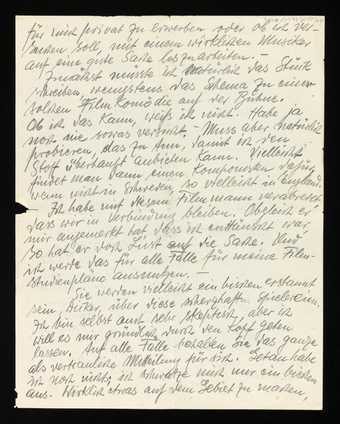 für mich privat zu erwerben oder ob ich ver-
suchen soll, mit einem wirklichen Musiker
auf eine gute Sache loszuarbeiten.
Zunächst müsste ich natürlich das Stück
schreiben, wenigstens das Schema zu einer
solchen Filmkomödie auf der Bühne.
Ob ich das kann, weiß ich nicht. Habe ja
noch nie sowas versucht. Muss aber natürlich
probieren, das zu tun, damit ich den
Stoff überhaupt anbieten kann. Vielleicht
findet man dann einen Komponisten dafür,
wenn nicht in Schweden, so vielleicht in England.
Ich habe mit diesem Filmmann verabredet
dass wir in Verbindung bleiben. Obgleich er
mir angemerkt hat dass ich enttäuscht war,
so hat er doch Lust auf die Sache. Und
ich werde das für alle Fälle für meine Film-
studienpläne ausnutzen. —
Sie werden vielleicht ein bisschen erstaunt
sein, über diese Spielereien.
Ich bin selbst auch sehr skeptisch, aber ich
will es mir gründlich durch den Kopf gehen
lassen. Auf alle Fälle behalten Sie das ganze
als vertrauliche Mitteilung für sich. Getan habe
ich noch nichts, ich mich nur ein bisschen
aus. Wirklich etwas auf dem Gebiet zu machen,